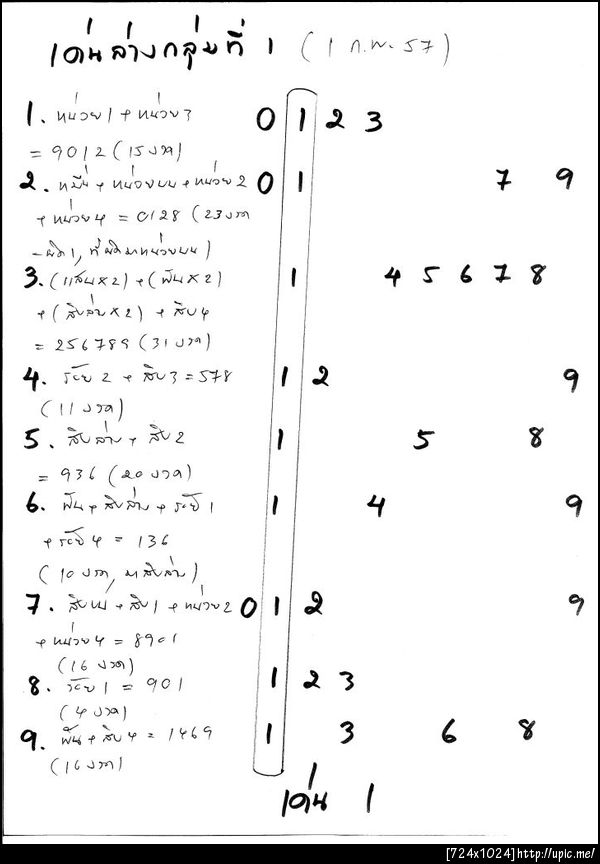 เด่นล่างกลุ่มที่ 1 (1 ก.พ. 57)
1. หน่วย1+หน่วย3 0 1 2 3
= 9012 (15 งวด)
2. หมื่น+หน่วยบน+หน่วย2 0 1 7 9
+หน่วย4 = 0128 (23งวด
-ผิด1, ที่ผิดมาหน่วยบน)
3. (แสน×2)+(พัน×2) 1 4 5 6 7 8
+(สิบล่าง×2)+สิบ4
= 256789 (31งวด)
4. ร้อย2+สิบ3=578 1 2 9
(11งวด)
5. สิบล่าง+สิบ2 1 5 8
= 936 (20งวด)
6. พัน+สิบล่าง+ร้อย1 1 4 9
+ร้อย4 = 136
(10งวด, มาสิบล่าง)
7. สิบบน+สิบ1+หน่วย2 0 1 2 9
+หน่วย4 = 8901
(16 งวด)
8. ร้อย1 = 901 1 2 3
(4งวด)
9. พัน+สิบ4 = 1469 1 3 6 8
(16งวด)
เด่น 1
[724x1024]http://upic.me/